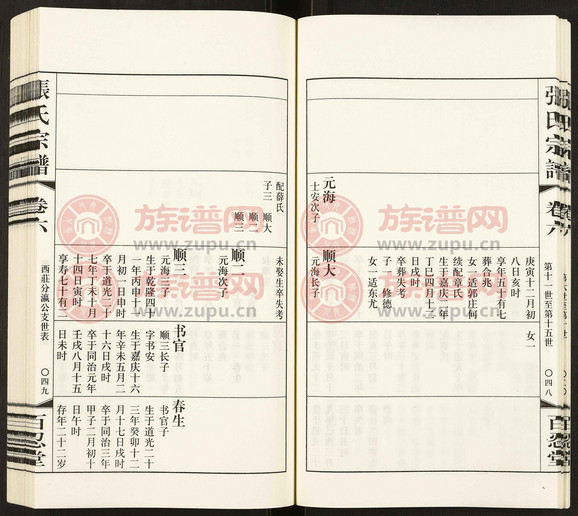 張氏宗譜
卷六
第十一世至第十五世
〇四八
百忍堂
元海
士安次子
顺大
元海长子
庚寅十二月初
八日亥时
享年五十有七
葬合兆
女一适郭庄何
续配章氏
生于嘉庆二年
丁巳四月十三
日戌时
卒葬失考
子一 修德
女一适东尤
女一
配薛氏
子三 顺大
顺二
顺三
未娶生卒失考
顺二
元海次子
顺三
元海三子
生于乾隆四十
一年丙申十一
月初一日申时
卒于道光二十
七年丁未十月
十四日寅时
享寿七十有二
书官
顺三长子
字书安
生于嘉庆十六
年辛未五月二
十六日戌时
卒于同治元年
壬戌八月十五
日未时
春生
书官子
生于道光二十
三年癸卯十二
月十七日戌时
卒于同治三年
甲子二月初十
日午时
存年二十二岁
張氏宗譜
卷六
西莊分瀛公支世表
〇四九
百忍堂
族谱网
www.zupu.cn
族谱网
www.zupu.cn